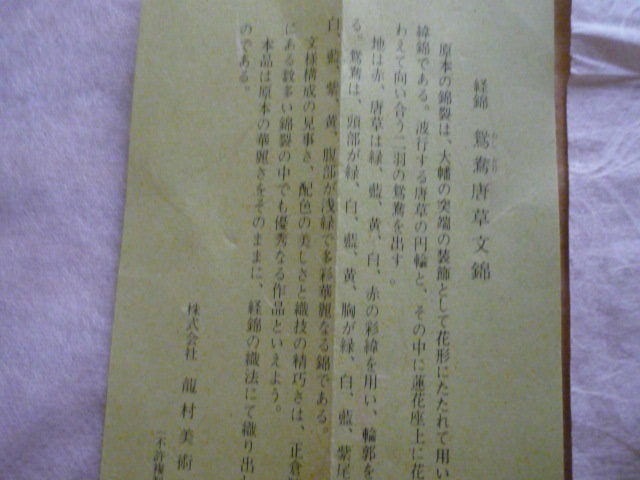 経錦 鴛鴦唐草文錦
おし どり
原本の錦裂は、大幡の突端の装飾として花形にたたれて用い
緯錦である。波行する唐草の円輪と、その中に蓮花座上に花
わえて向い合う二羽の鴛鴦を出す。
地は赤、唐草は緑、藍、黄、白、赤の彩緯を用い、輪郭を
る。鴛鴦は、頭部が緑、白、藍、黄、胸が緑、白、藍、紫尾
白、藍、紫、黄、腹部が浅緑で多彩華麗なる錦である。
文様構成の見事さ、配色の美しさと織技の精巧さは、正倉
にある数多い錦裂の中でも優秀なる作品といえよう。
本品は原本の華麗さをそのままに、経錦の織法にて織り出
のである。
株式会社 龍村美術
(不許複